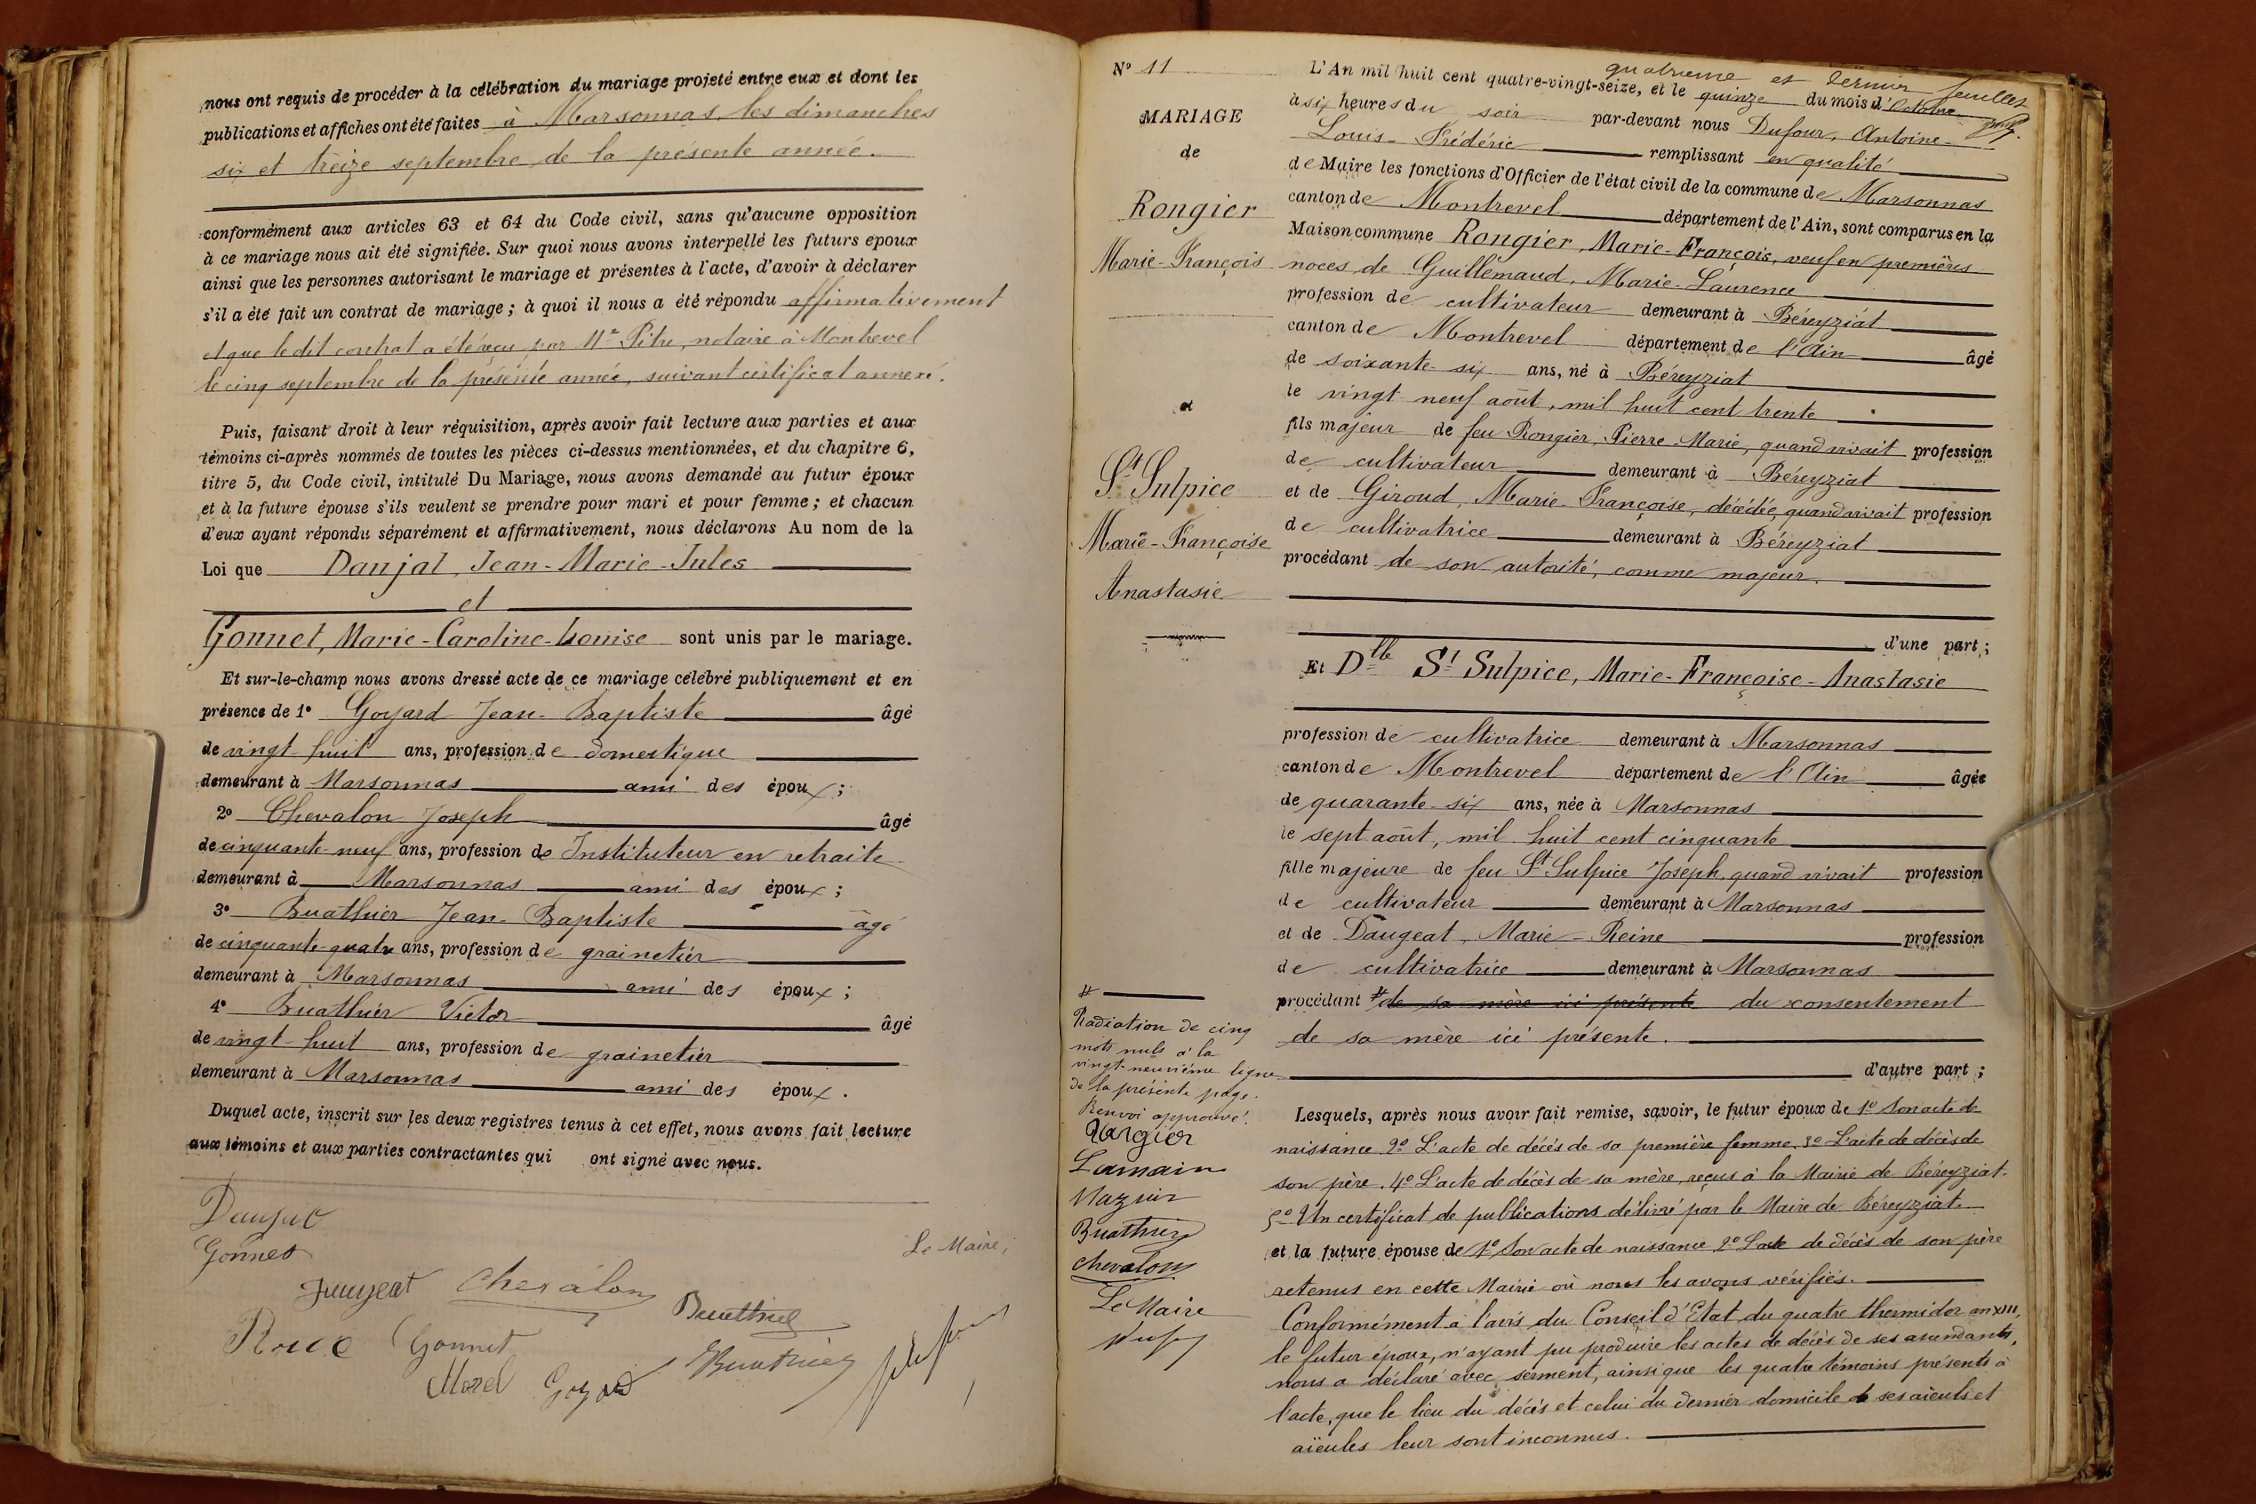 nous ont requis de procéder à la célébration du mariage projeté entre eux et dont les
publications et affiches ont été faites à Marsonnas, les dimanches
six et treize septembre de la présente année.
conformément aux articles 63 et 64 du Code civil, sans qu'aucune opposition
à ce mariage nous ait été signifiée. Sur quoi nous avons interpellé les futurs epoux
ainsi que les personnes autorisant le mariage et présentes à l'acte, d'avoir à déclarer
s'il a été fait un contrat de mariage ; à quoi il nous a été répondu affirmativement
et que le dit contrat a été reçu par Me Pitre, notaire à Montrevel
le cinq septembre de la présente année, suivant certificat annexé.
Puis, faisant droit à leur réquisition, après avoir fait lecture aux parties et aux
témoins ci-après nommés de toutes les pièces ci-dessus mentionnées, et du chapitre 6,
titre 5, du Code civil, intitulé Du Mariage, nous avons demandé au futur époux
et à la future épouse s'ils veulent se prendre pour mari et pour femme ; et chacun
d'eux ayant répondu séparément et affirmativement, nous déclarons Au nom de la
Loi que Danjat, Jean-Marie-Jules
et
Gonnet, Marie-Caroline-Louise sont unis par le mariage.
Et sur-le-champ nous avons dressé acte de ce mariage célébré publiquement et en
présence de 1° Goyard Jean-Baptiste âgé
de vingt-huit ans, profession de domestique
demeurant à Marsonnas ami des époux ;
2° Chevalon Joseph âgé
de cinquante-neuf ans, profession de Instituteur en retraite
demeurant à Marsonnas ami des époux ;
3° Buathier Jean-Baptiste âgé
de cinquante-quatre ans, profession de grainetier
demeurant à Marsonnas ami des époux ;
4° Buathier Victor âgé
de vingt-huit ans, profession de grainetier
demeurant à Marsonnas ami des époux.
Duquel acte, inscrit sur les deux registres tenus à cet effet, nous avons fait lecture
aux témoins et aux parties contractantes qui ont signé avec nous.
Danjat
Gonnet
Le Maire,
Chevalon
Buathier
Gonnet
Buathier
Morel Goyard
quatrième et dernier feuillet
N° 11
MARIAGE
de
Rongier
Marie-François
et
St Sulpice
Marie-Françoise
Anastasie
L'An mil huit cent quatre-vingt-seize, et le quinze du mois d'Octobre
à six heures du soir par-devant nous Dufour, Antoine-
Louis-Frédéric remplissant en qualité
de Maire les fonctions d'Officier de l'état civil de la commune de Marsonnas
canton de Montrevel département de l'Ain, sont comparus en la
Maison commune Rongier, Marie-François, veuf en premières
noces de Guillemaud, Marie-Laurence
profession de cultivateur demeurant à Béreyziat
canton de Montrevel département de l'Ain âgé
de soixante-six ans, né à Béreyziat
le vingt neuf août, mil huit cent trente
fils majeur de feu Rongier, Pierre-Marie, quand vivait profession
de cultivateur demeurant à Béreyziat
et de Giroud, Marie-Françoise, décédée, quand vivait profession
de cultivatrice demeurant à Béreyziat
procédant de son autorité, comme majeur.
d'une part ;
Et Dlle St Sulpice, Marie-Françoise-Anastasie
profession de cultivatrice demeurant à Marsonnas
canton de Montrevel département de l'Ain âgée
de quarante-six ans, née à Marsonnas
le sept août, mil huit cent cinquante
fille majeure de feu St Sulpice Joseph, quand vivait profession
de cultivateur demeurant à Marsonnas
et de Daugeat, Marie-Reine profession
de cultivatrice demeurant à Marsonnas
procédant # de sa mère ici présente du consentement
de sa mère ici présente.
d'autre part ;
Lesquels, après nous avoir fait remise, savoir, le futur époux de 1° Son acte de
naissance 2° L'acte de décès de sa première femme 3° L'acte de décès de
son père. 4° L'acte de décès de sa mère, reçus à la Mairie de Béreyziat.
5° Un certificat de publications délivré par le Maire de Béreyziat.
et la future épouse de 1° Son acte de naissance 2° L'acte de décès de son père
retenus en cette Mairie où nous les avons vérifiés.
Conformément à l'avis du Conseil d'Etat du quatre thermidor an XIII,
le futur époux, n'ayant pu produire les actes de décès de ses ascendants,
nous a déclaré avec serment, ainsi que les quatre témoins présents à
l'acte, que le lieu du décès et celui du dernier domicile de ses aïeuls et
aïeules leur sont inconnus.
#
Radiation de cinq
mots nuls à la
vingt-neuvième ligne
de la présente page.
Renvoi approuvé.
Rongier
Lamain
Mazuir
Buathier
Chevalon
Le Maire